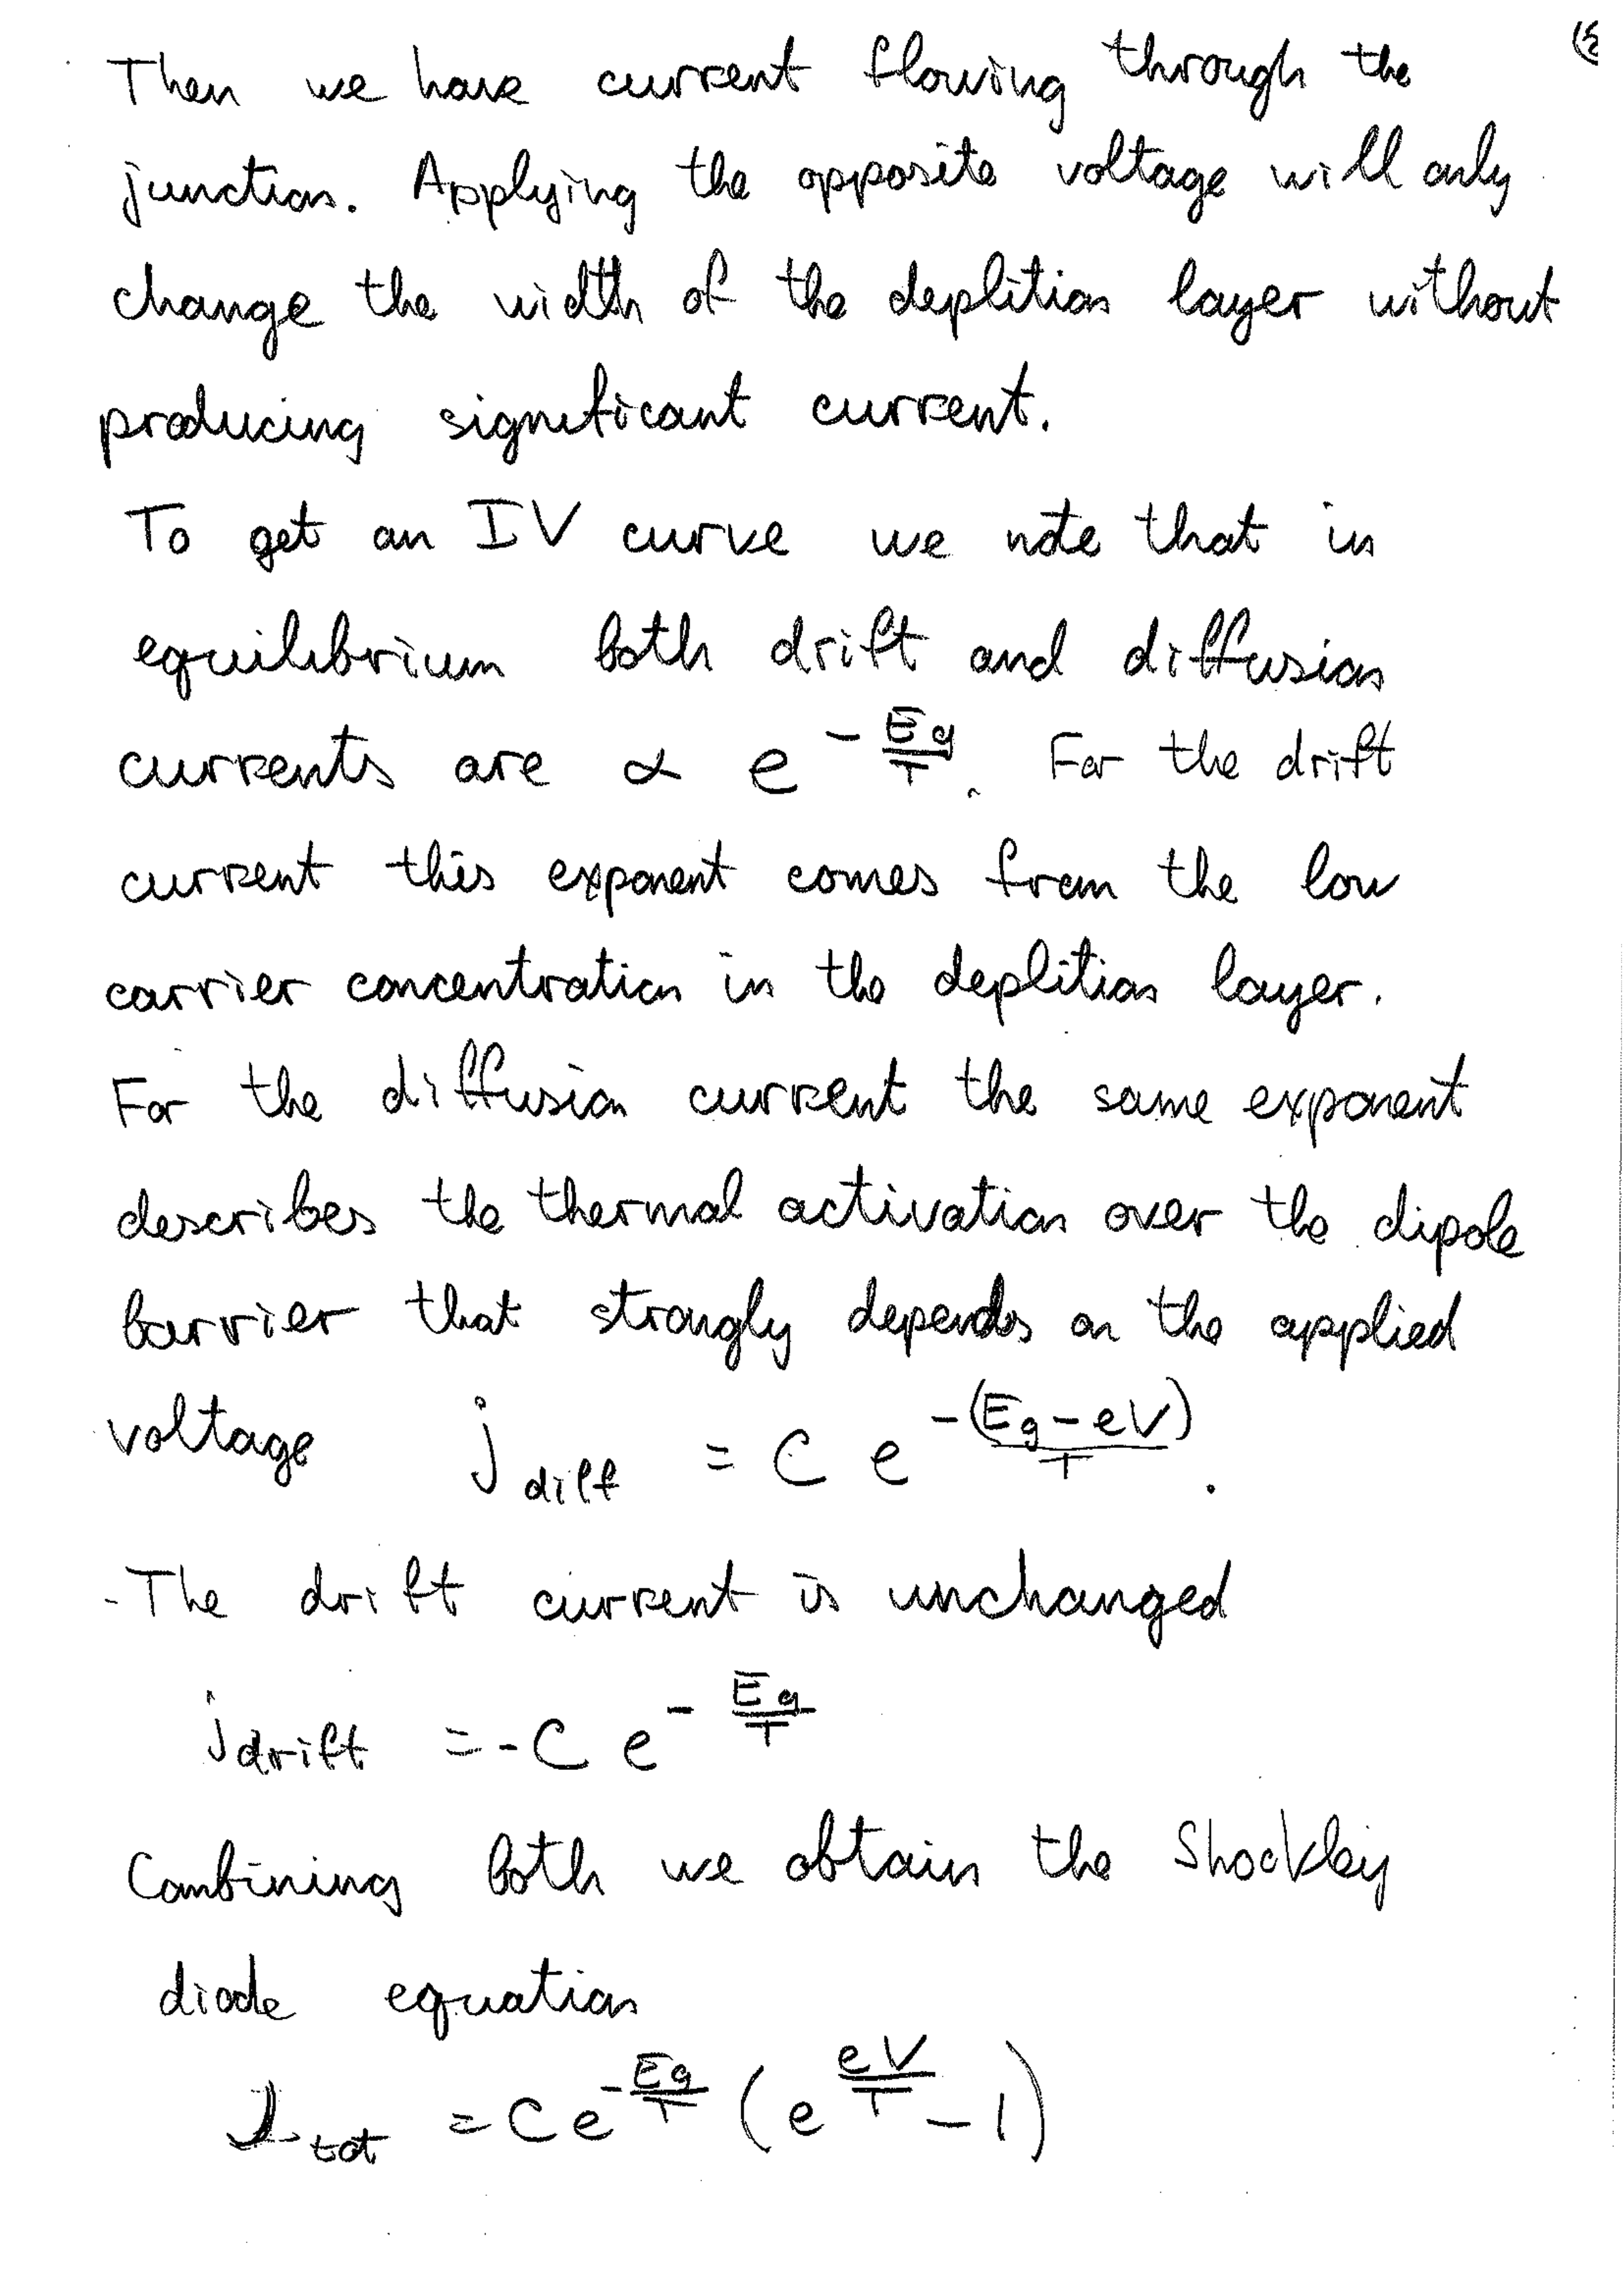 Then we have current flowing through the
junction. Applying the opposite voltage will only
change the width of the deplition layer without
producing significant current.
To get an IV curve we note that in
equilibrium both drift and diffusion
currents are ∝ e^{-\frac{Eg}{T}}. For the drift
current this exponent comes from the low
carrier concentration in the deplition layer.
For the diffusion current the same exponent
describes the thermal activation over the dipole
barrier that strongly depends on the applied
voltage j_{diff} = C e^{\frac{-(E_g - eV)}{T}}.
- The drift current is unchanged
j_{drift} = - C e^{-\frac{Eg}{T}}
Combining both we obtain the Shockley
diode equation
J_{tot} = C e^{-\frac{Eg}{T}} (e^{\frac{eV}{T}} - 1)